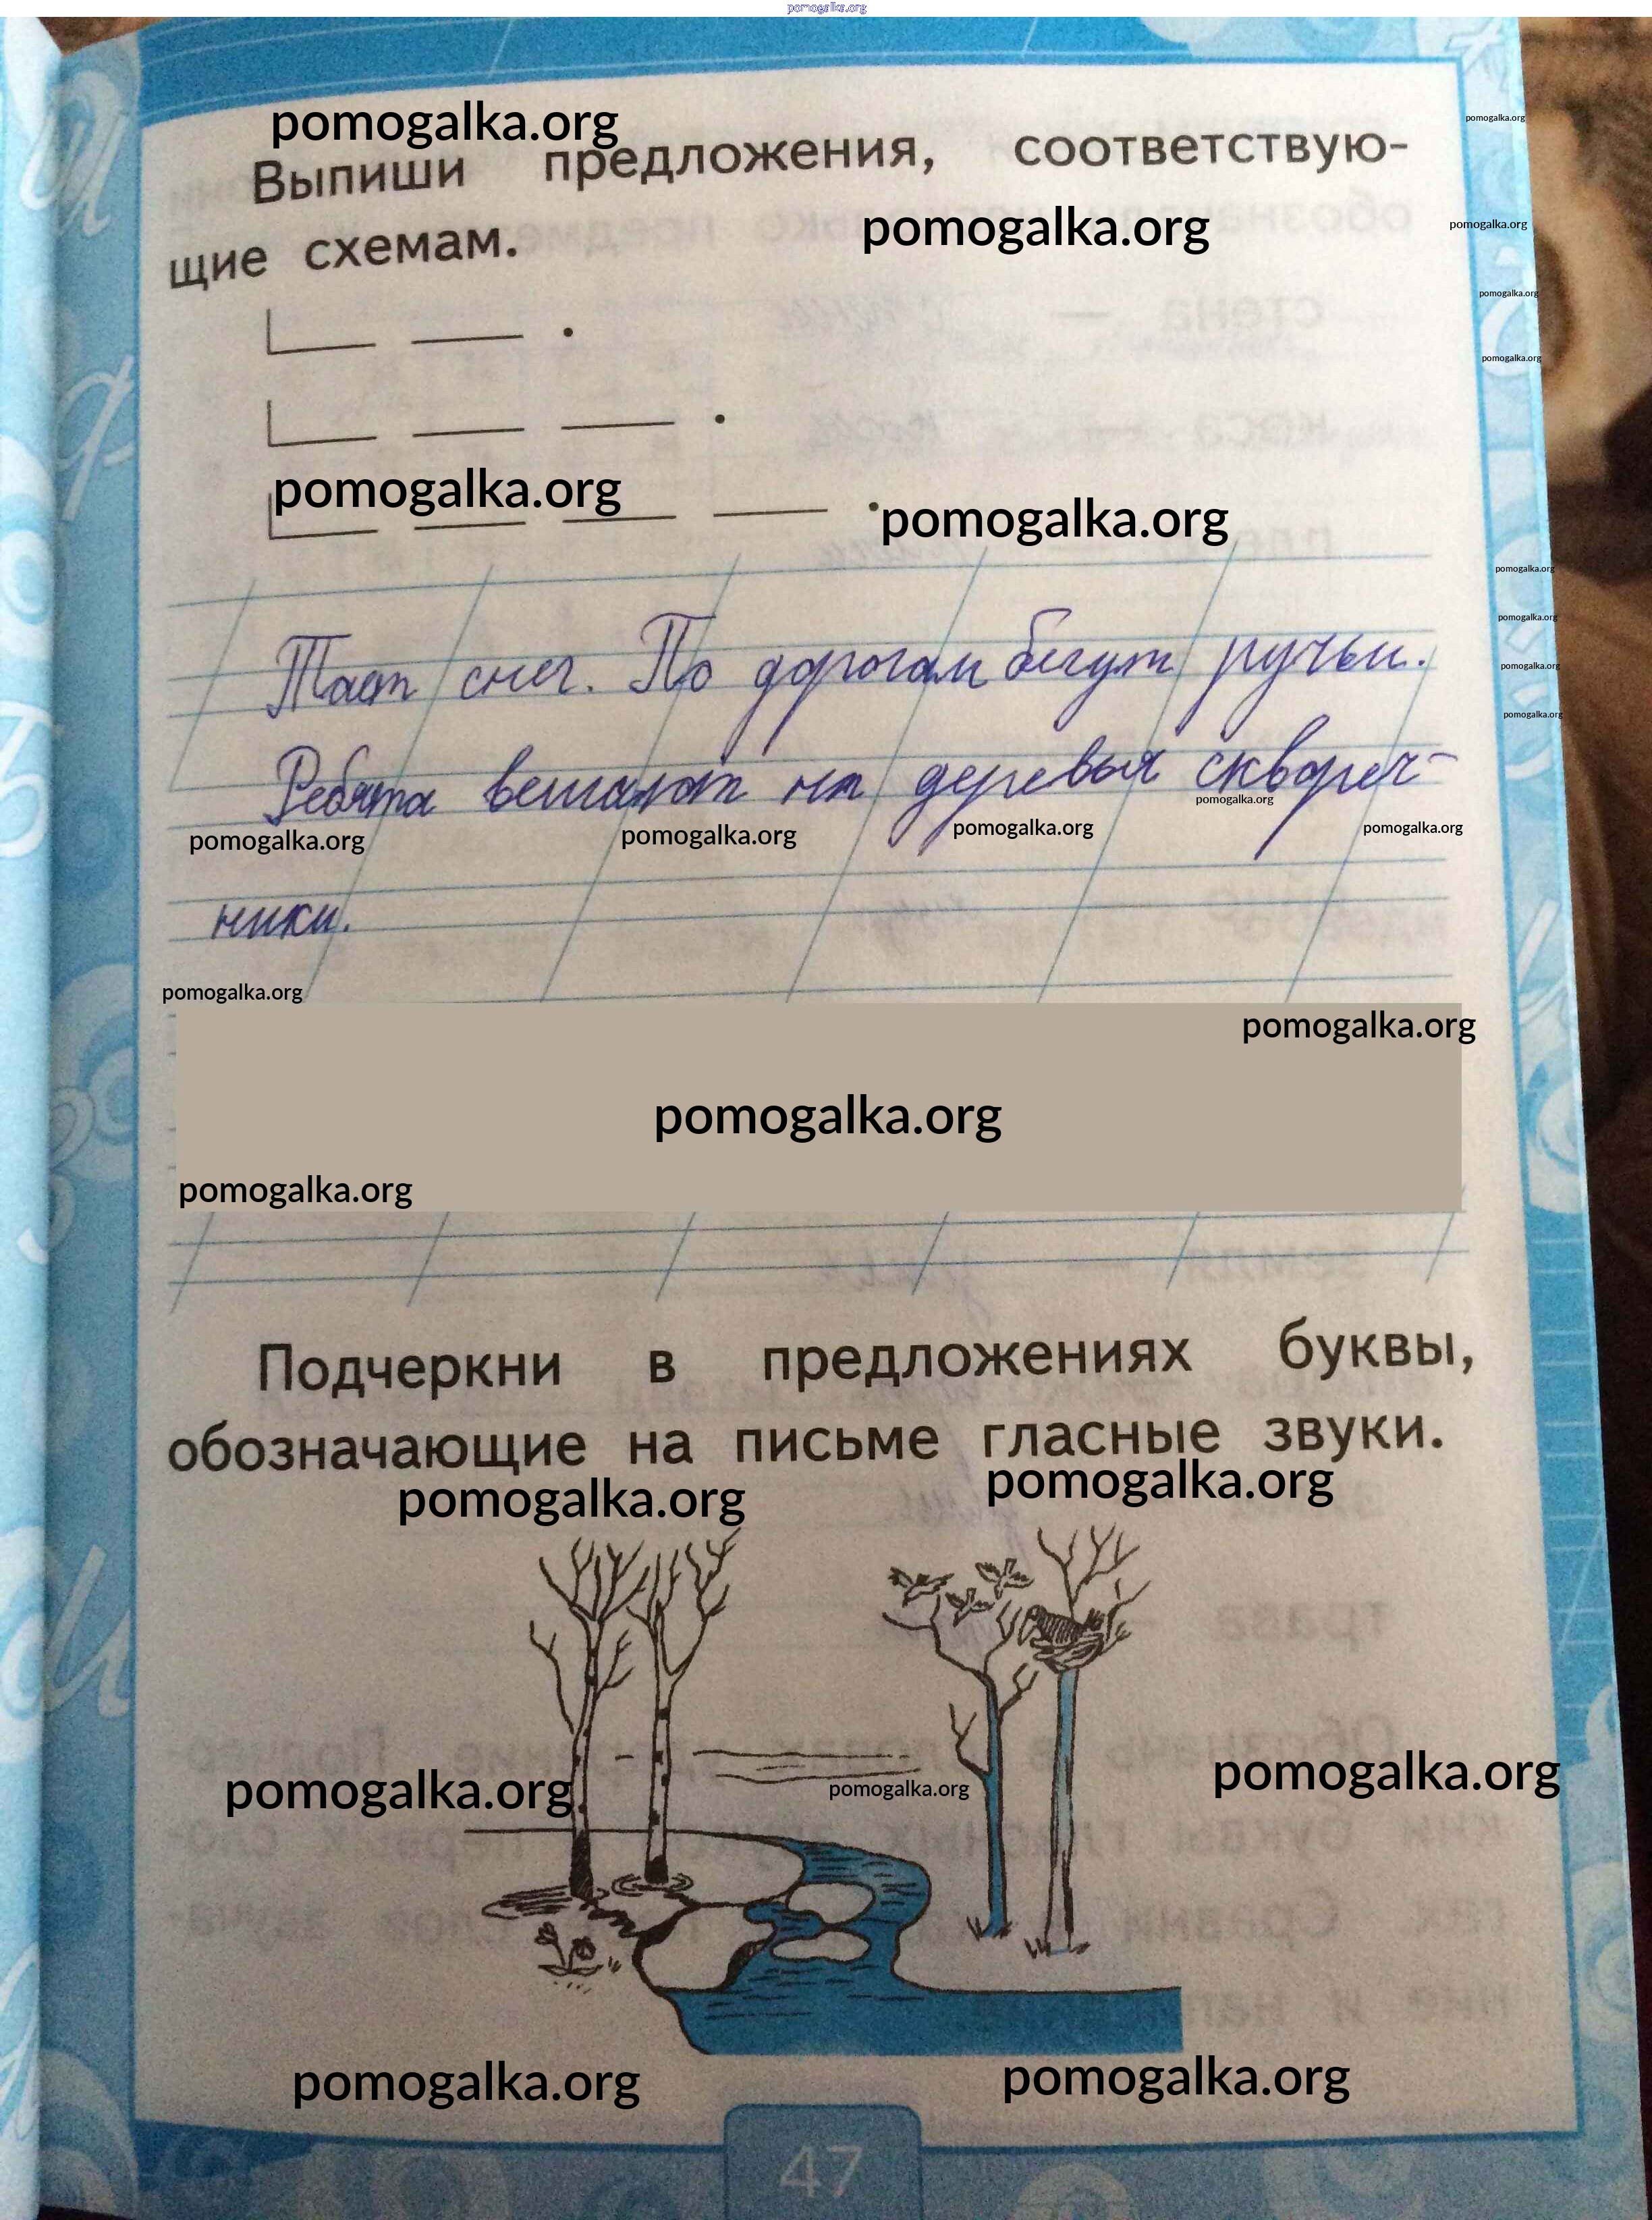 pomogalka.org
pomogalka.org
pomogalka.org
Выпиши предложения, соответствую-
pomogalka.org
pomogalka.org
щие схемам.
pomogalka.org
pomogalka.org
pomogalka.org
pomogalka.org
pomogalka.org
pomogalka.org
Тает снег. По дорогам бегут ручьи.
pomogalka.org
pomogalka.org
Ребята вешают на деревья сквореч-
pomogalka.org
pomogalka.org pomogalka.org pomogalka.org pomogalka.org
ники.
pomogalka.org
pomogalka.org
pomogalka.org
pomogalka.org
Подчеркни в предложениях буквы,
обозначающие на письме гласные звуки.
pomogalka.org pomogalka.org
pomogalka.org pomogalka.org pomogalka.org
pomogalka.org pomogalka.org
47